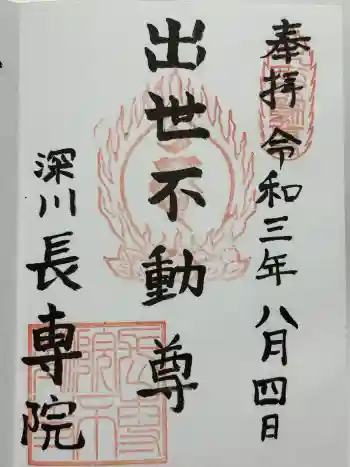 奉拝 令和三年 八月四日
出世不動尊
深川 長専院